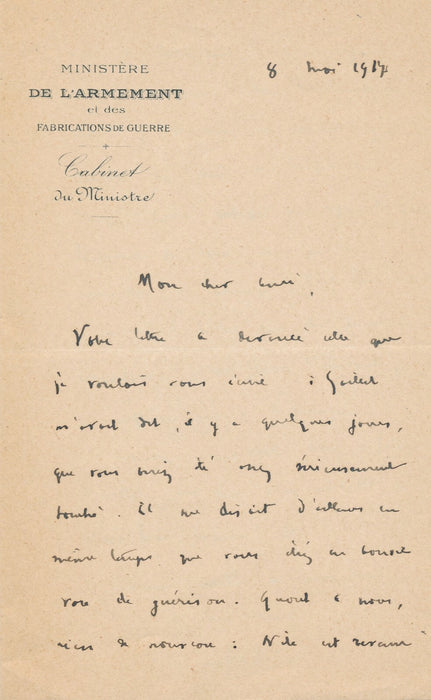 MINISTÈRE
DE L'ARMEMENT
et des
FABRICATIONS DE GUERRE
Cabinet
du Ministre
8 mai 1917
Mon cher ami,
Votre lettre a devancé celle que
je voulais vous écrire :
m'avait dit, il y a quelques jours,
que vous aviez été assez sérieusement
touché. Il me disait d'ailleurs en
même temps que vous étiez en bonne
voie de guérison. Quant à nous,
rien de nouveau : est revenu